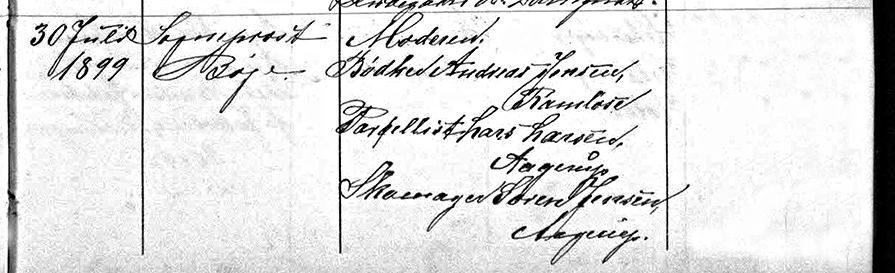 30 Juli
1899
Sogneprest
Böje.
Moderen,
Bödker Andreas Jensen,
Ramlöse
Parcellist Lars Larsen,
Aagerup
Skomager Sören Jensen,
Aagerup.